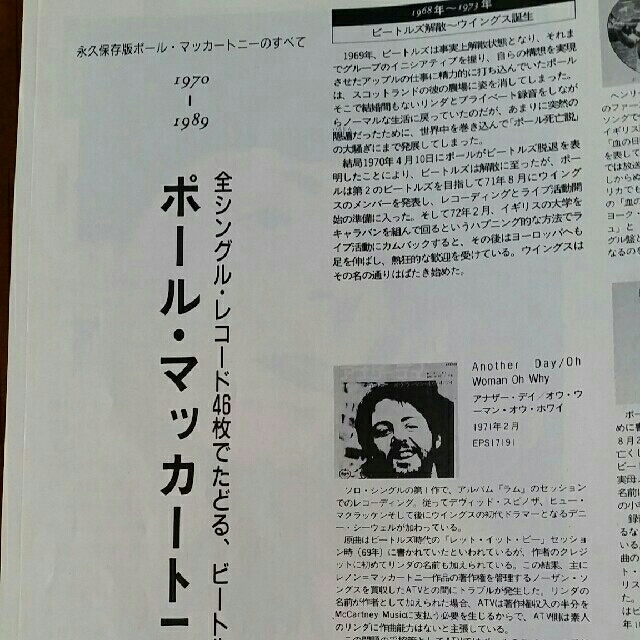 永久保存版ポール・マッカートニーのすべて
1970
1989
全シングル・レコード46枚でたどる、ビート
ポール・マッカート
1968年〜1973年
ビートルズ解散〜ウイングス誕生
1969年、ビートルズは事実上解散状態となり、それま
でグループのイニシアティブを握り、自らの構想を実現
させたアップルの仕事に精力的に打ち込んでいたポール
は、スコットランドの彼の農場に姿を消してしまった。
そこで結婚間もないリンダとプライベート録音をしなが
らノーマルな生活に戻っていたのだが、あまりに突然の
隠遁だったために、世界中を巻き込んで「ポール死亡説」
の大騒ぎにまで発展してしまった。
結局1970年4月10日にポールがビートルズ脱退を表
明したことにより、ビートルズは解散に至ったが、ポー
ルは第2のビートルズを目指して71年8月にウイング
スのメンバーを発表し、レコーディングとライブ活動開
始の準備に入った。そして72年2月、イギリスの大学を
キャラバンを組んで回るというハプニング的な方法でラ
イブ活動にカムバックすると、その後はヨーロッパへも
足を伸ばし、熱狂的な歓迎を受けている。ウイングスは
その名の通りはばたき始めた。
Another Day/Oh
Woman Oh Why
アナザー・デイ/オウ・ウ
ーマン・オウ・ホワイ
1971年2月
EPS17191
ソロ・シングルの第1作で、アルバム「ラム」のセッション
でのレコーディング。従ってデヴィッド・スピノザ、ヒュー・
マクラッケンそして後にウイングスの初代ドラマーとなるデニ
ー・シーウェルが加わっている。
原曲はビートルズ時代の「レット・イット・ビー」セッショ
ン時(69年)に書かれていたといわれているが、作者のクレジ
ットに初めてリンダの名前も加えられている。この結果、主に
レノン=マッカートニー作品の著作権を管理するノーザン・ソ
ングスを買収したATVとの間にトラブルが発生した。リンダの
名前が作者として加えられた場合、ATVは著作権収入の半分を
McCartney Musicに支払う必要を生じるからで、ATV側は素人
のリンダに作曲能力はないと主張している。
ヘンリー
のファー
ソングで
イギリス
「血の日
を表して
では放送
リカで
の「血の
ヨーク
ュ」と
グル盤と
なるのを
ポー
めに書
8月2
亡くし
ビー
実母
の小